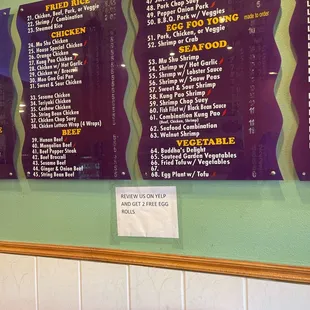 FRIED RICE
21. Chicken, Beef, Pork, or Veggie
22. Shrimp / Combination
23. Steamed Rice
CHICKEN
24. Mu Shu Chicken
25. House Special Chicken
26. Orange Chicken
27. Kung Pao Chicken
28. Chicken w/ Hot Garlic
29. Chicken w/ Broccoli
30. Moo Goo Gai Pan
31. Sweet & Sour Chicken
33. Sesame Chicken
34. Teriyaki Chicken
35. Cashew Chicken
36. String Bean Chicken
37. Chicken Chop Suey
38. Chicken Lettuce Wrap (4 Wraps)
BEEF
39. Hunan Beef
40. Mongolian Beef
41. Beef Pepper Steak
42. Beef Broccoli
43. Sesame Beef
44. Ginger & Onion Beef
45. String Bean Beef
48. Pork Chop Suey
49. Pepper Pork
50. B.B.Q. Pork w/ Veggies
EGG FOO YOUNG
made to order
51. Chicken, Beef, Pork, or Veggie
52. Shrimp or Crab
SEAFOOD
53. Mu Shu Shrimp
54. Shrimp w/ Hot Garlic
55. Shrimp w/ Lobster Sauce
56. Shrimp w/ Snow Peas
57. Sweet & Sour Shrimp
58. Kung Pao Shrimp
59. Shrimp Chop Suey
60. Fish Filet w/ Black Bean Sauce
61. Combination Kung Pao
(Beef, Chicken, Shrimp)
62. Seafood Combination
63. Walnut Shrimp
VEGETABLE
64. Buddha's Delight
65. Sauteed Garden Vegetables
66. Fried Tofu w/ Veggies
67.
68. Egg Plant w/ Tofu
REVIEW US ON YELP
AND GET 2 FREE EGG
ROLLS